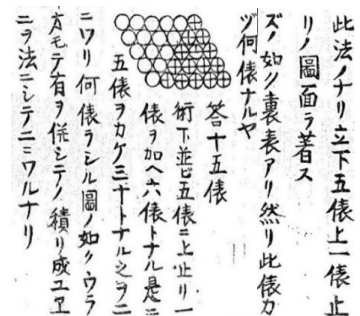 此法ノナリ立下五俵上一俵止
リノ圖面ヲ著ス
ズノ如ク裏表アリ然リ此俵カ
ヅ何俵ナルヤ
答十五俵
術下並ビ五俵ニ上止リ一
俵ヲ加ヘ六俵トナル是ニ
五俵ヲカケ三十トナル之ヲ二
ニワリ何俵ヲシル圖ノ如クウラ
方モテ有ヲ併シテノ積リ成ユヱ
ニヲ法ニシテニニワルナリ